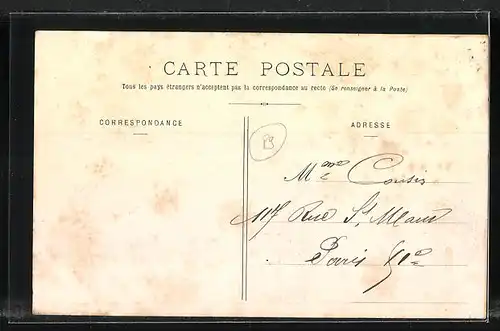 CARTE POSTALE
Tous les pays étrangers n'acceptent pas la correspondance au recto (Se renseigner à la Poste)
CORRESPONDANCE
ADRESSE
B
Mme Cousin
117 Rue St Maur
Paris XIe